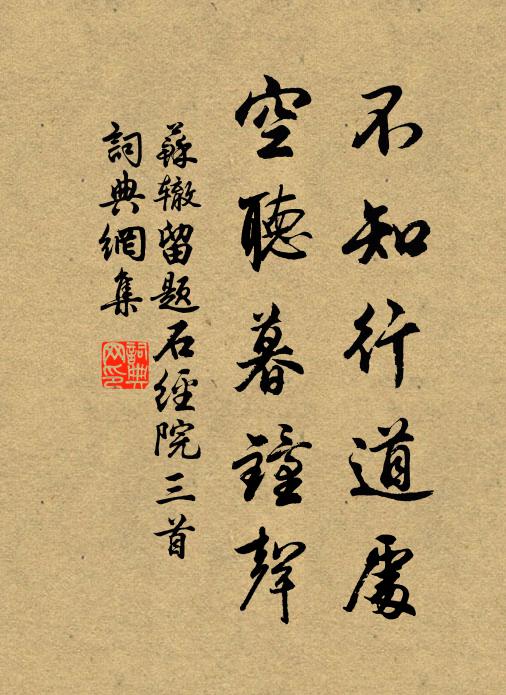 不知行道處
空聽暮鐘聲
蘇辙留題石經院三首
詞典網集
詞典
网印